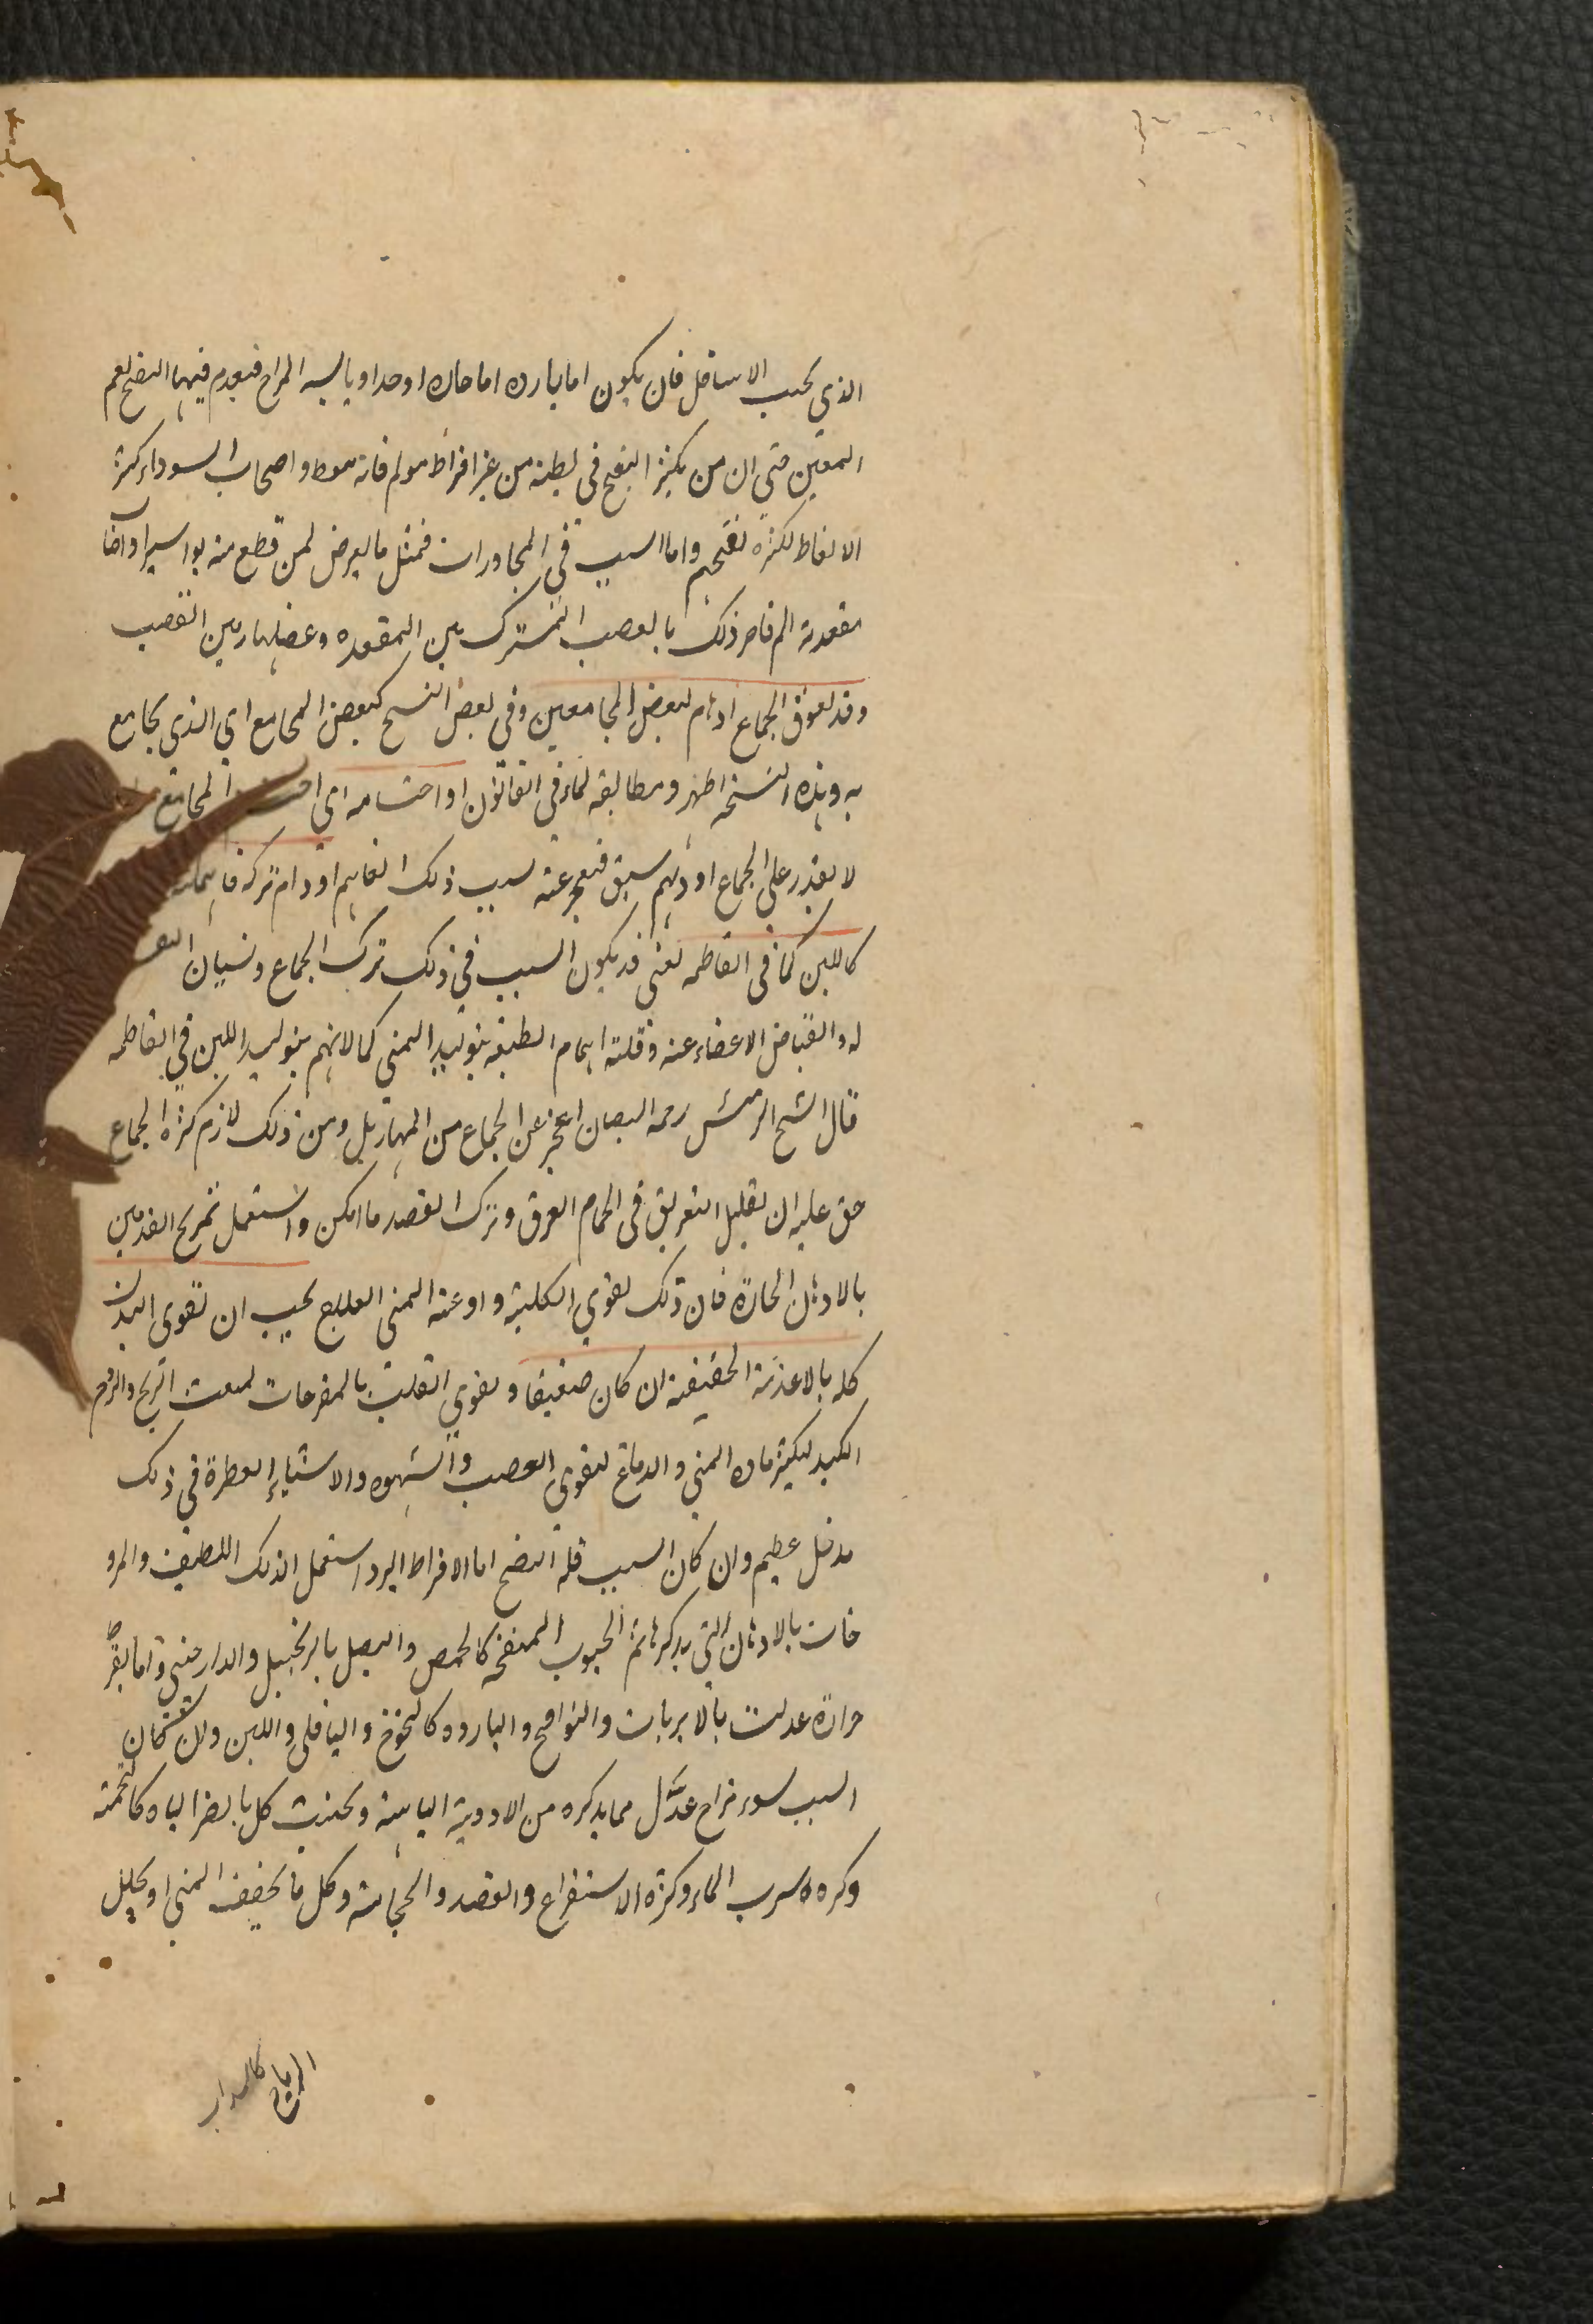 الذي بحسب الاسافل فان يكون اما بارده اما حاره او حدا و يابسه المزاج فيعدم فيها النفخ لعم
المعين حتي ان من يكثر النفخ في بطنه من غير افراط مولم فانه معط و اصحاب السوداء كثر
الانعاظ لكثره نفخهم و اما السبب في المجاورات فمثل ما يعرض لمن قطع منه بواسير او اصاب
مقعدته الم فاضر ذلك بالعصب المشترك بين المقعده و عضلها و بين القضيب
و قد يعوق الجماع اوهام لبعض المجامعين و في بعض النسخ كبعض المجامع اي الذي يجامع
به و هذه النسخه اظهر و مطابقه لما في القانون او احتشامه اي المجامع
لا يقدر علي الجماع او وهم سبق فيعجز عنه بسبب ذلك الفاهم او دام تركه فا
كاللبن كما في الفاطمه يعني قد يكون السبب في ذلك ترك الجماع و نسيان النفس
له و انقباض الاعضاء عنه و قلته اهتمام الطبيعه بتوليد المني كما لا تهتم بتوليد اللبن في الفاطمه
قال الشيخ الرئيس رحمه الله ان العجز عن الجماع من المهازيل و من ذلك لازم كثره الجماع
حق عليه ان يقلل التعريق في الحمام العرق و ترك الفصد ما امكن و استعمل تمريخ القدمين
بالادهان الحارة فان ذلك يقوي الكليه و اوعيه المني العلاج يجب ان يقوي البدن
كله بالاغذيه الخفيفة ان كان ضعيفا و يقوي القلب بالمفرحات لتبعث الريح و الروح
الكبد ليكثر ماده المني و الدماغ ليقوي العصب و الشهوه و الاشياء العطرة في ذلك
مدخل عظيم و ان كان السبب قلة النفخ اما لافراط البرد استعمل الدلك اللطيف و المرو
خات بالادهان التي يذكرها ثم الحبوب المنفخه كالحمص و البصل بالزنجبيل و الدارصيني و اما بفرط
حرارة عدلت بالابربات و النوافخ و البارده كالخوخ و الباقلي و اللبن و ان كان
السبب سوء مزاج عدل مما يذكره من الادوية الباهية و يجتنب كل ما يضر الباه كالتخمة
و كره شرب الماء و كثره الاستفراغ و الفصد و الحجامة و كل ما يجفف المني او يحلل
الرياح كالسداب